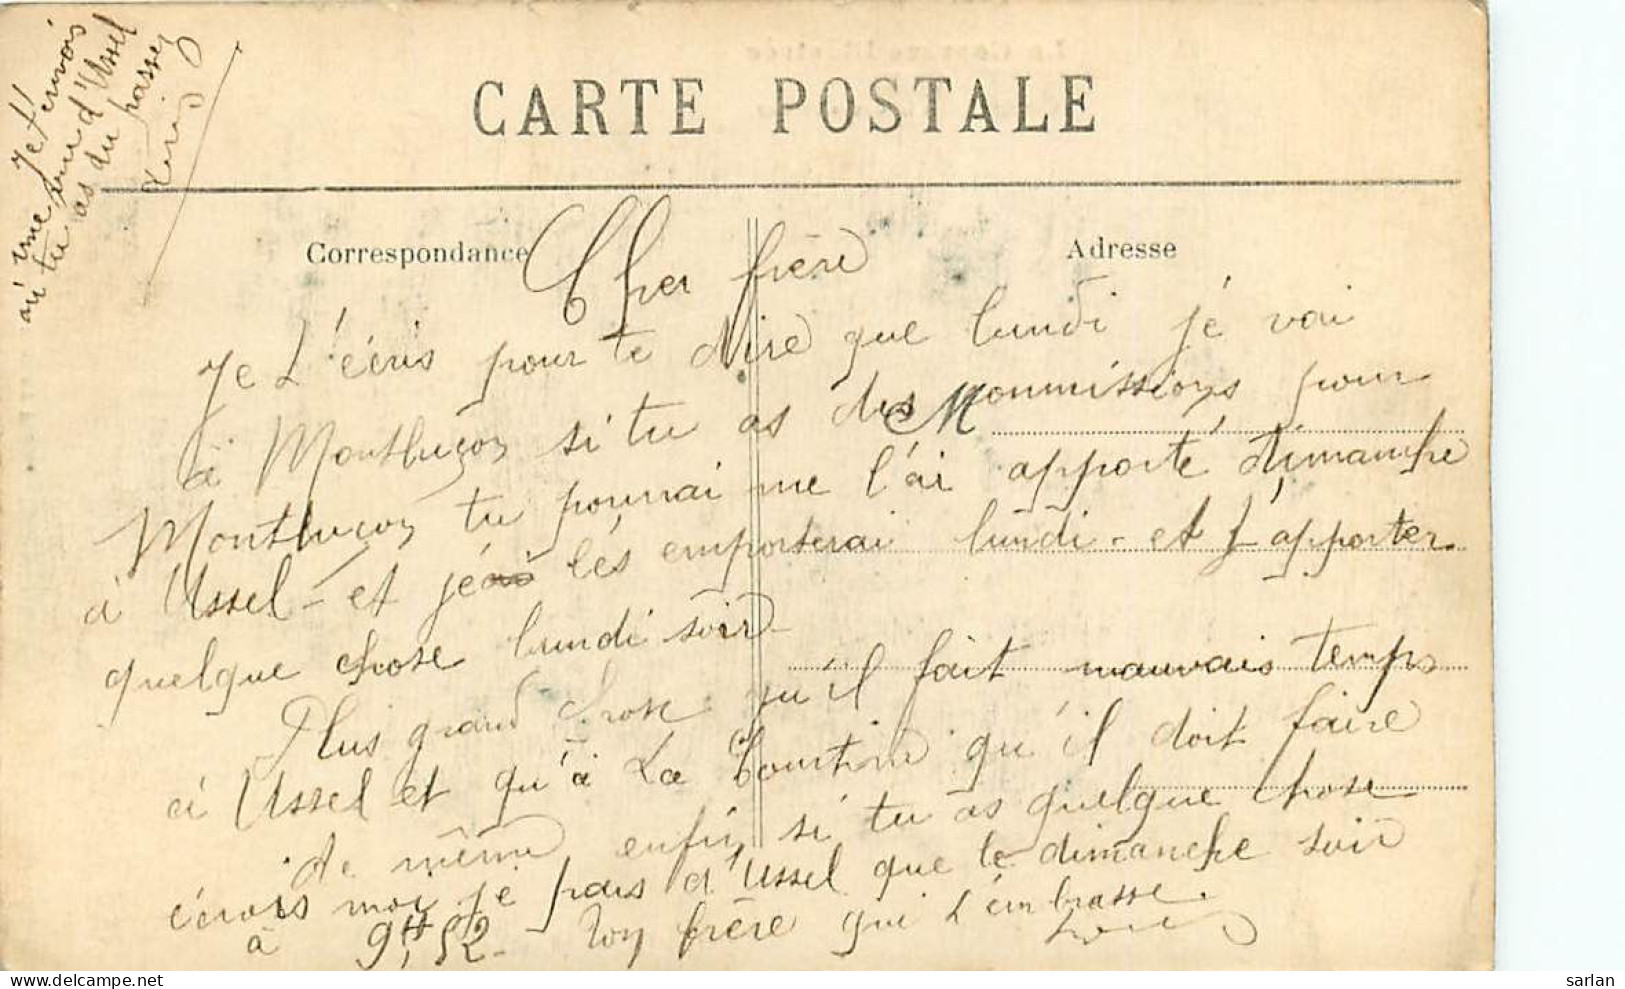 Je t'envois
une vue d'Ussel
où tu as du passer
Louis
La Corrèze Illustrée
CARTE POSTALE
Correspondance
Adresse
Cher frère
Je t'écris pour te dire que lundi jé vai
à Montluçon si tu as des commissions pour
Montluçon tu pourrai me l'ai apporté dimanche
à Ussel – et jé lés emporterai lundi – et t'apporter
quelque chose lundi soir –
Plus grand chose qu'il fait mauvais temps
à Ussel et qu'à La Courtine qu'il doit faire
de même enfin si tu as quelque chose
écrois moi je pars d'Ussel que le dimanche soir
à 9H,52 – Ton frère qui t'embrasse.
Louis
sarlan